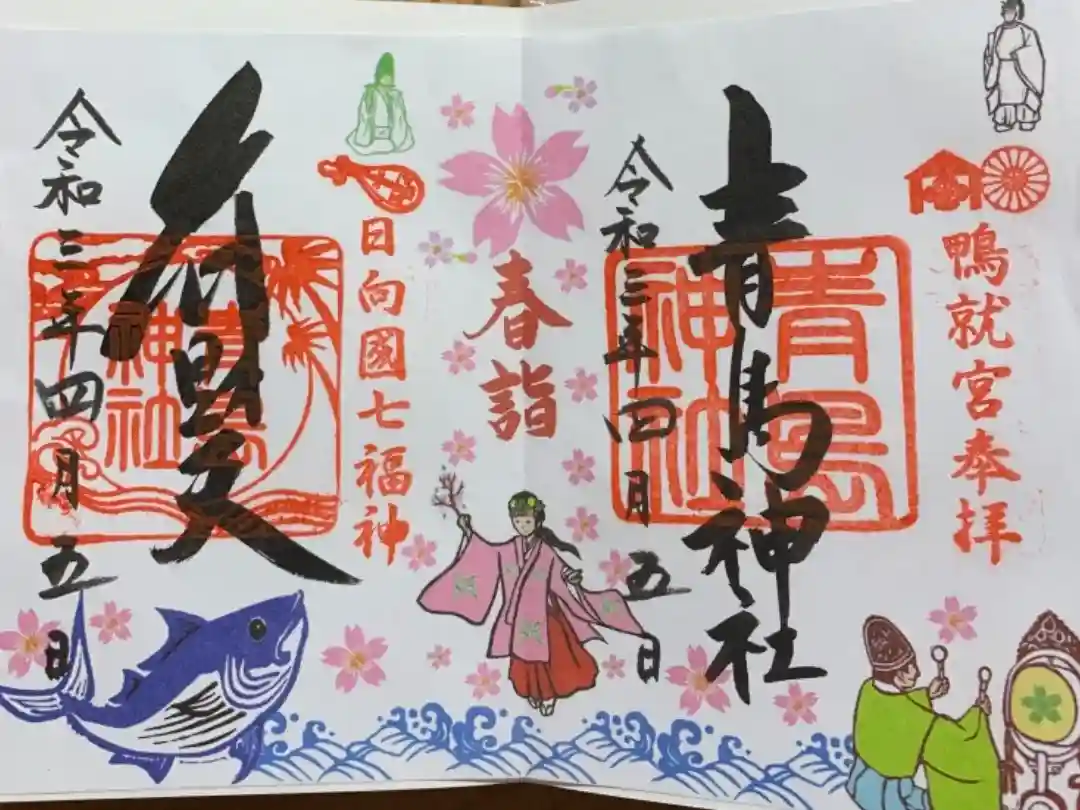 鴨就宮奉拝
青島神社
青島神社
令和三年四月五日
春詣
日向國七福神
弁財天
青島神社
令和三年四月五日